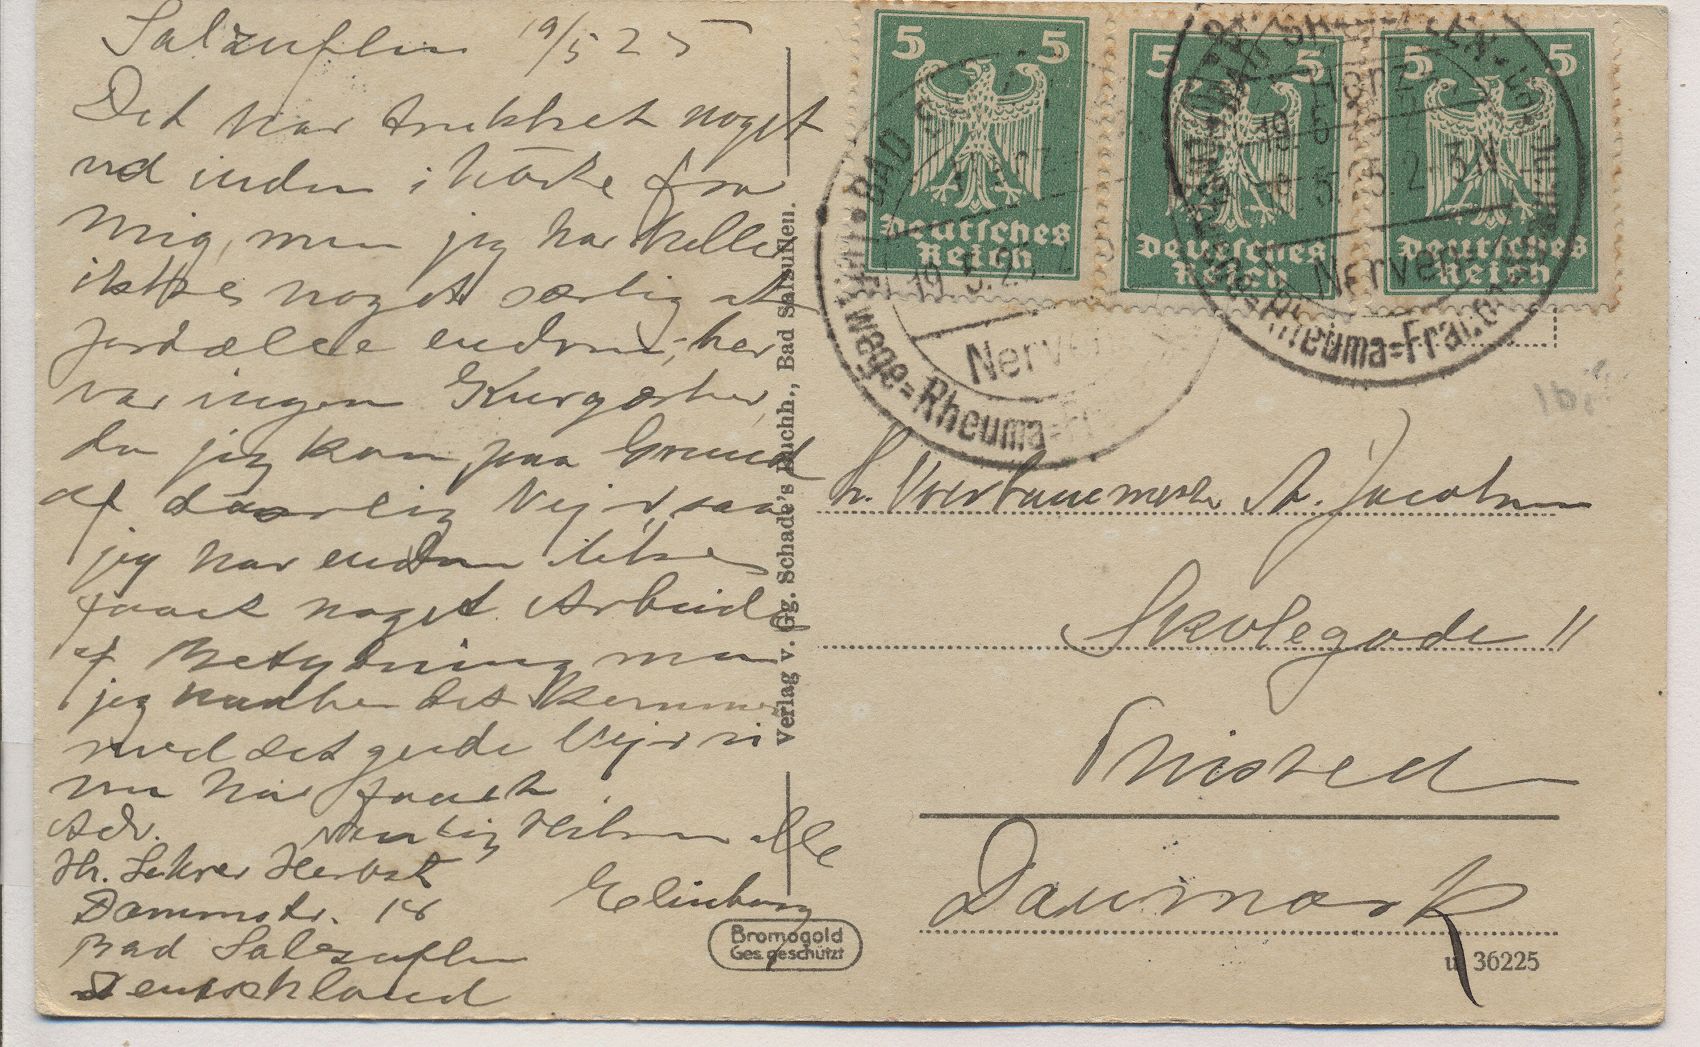 Salzuflen 19/5 25
Det har trukket noget
ud inden i hørte fra
mig, men jeg har heller
ikke noget særlig at
fortælle endnu, her
var ingen Kurgæster,
da jeg kom paa Grund
af daarlig Vejr, saa
jeg har endnu ikke
faaet noget Arbeide
af Betydning men
jeg haaber det kommer
med det gode Vejr vi
nu har faaet
Adr. Hilsen alle
Hr. Lehrer Herbst
Dammstr. 18
Bad Salzuflen
Deutschland
Verlag v. Gg. Schade's Buchh., Bad Salzuflen.
Bromogold
Ges. geschützt
5 5
Deutsches
Reich
5 5
Deutsches
Reich
5 5
Deutsches
Reich
BAD
19.5.25
Nerven
wege=Rheuma=
Herz
Nerven
Rheuma=
Jacobsen
Skolegade 11
Thisted
Danmark
36225